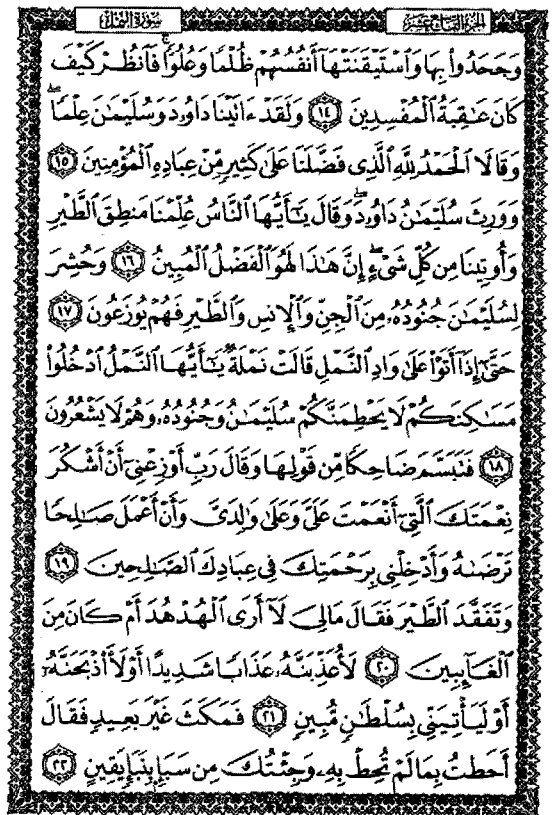 الجزء التاسع عشر
سورة النمل
وَجَحَدُوا۟ بِهَا وَٱسْتَيْقَنَتْهَآ أَنفُسُهُمْ ظُلْمًا وَعُلُوًّا ۚ فَٱنظُرْ كَيْفَ
كَانَ عَـٰقِبَةُ ٱلْمُفْسِدِينَ ١٤ وَلَقَدْ ءَاتَيْنَا دَاوُۥدَ وَسُلَيْمَـٰنَ عِلْمًا ۖ
وَقَالَا ٱلْحَمْدُ لِلَّهِ ٱلَّذِى فَضَّلَنَا عَلَىٰ كَثِيرٍ مِّنْ عِبَادِهِ ٱلْمُؤْمِنِينَ ١٥
وَوَرِثَ سُلَيْمَـٰنُ دَاوُۥدَ ۖ وَقَالَ يَـٰٓأَيُّهَا ٱلنَّاسُ عُلِّمْنَا مَنطِقَ ٱلطَّيْرِ
وَأُوتِينَا مِن كُلِّ شَىْءٍ ۖ إِنَّ هَـٰذَا لَهُوَ ٱلْفَضْلُ ٱلْمُبِينُ ١٦ وَحُشِرَ
لِسُلَيْمَـٰنَ جُنُودُهُۥ مِنَ ٱلْجِنِّ وَٱلْإِنسِ وَٱلطَّيْرِ فَهُمْ يُوزَعُونَ ١٧
حَتَّىٰٓ إِذَآ أَتَوْا۟ عَلَىٰ وَادِ ٱلنَّمْلِ قَالَتْ نَمْلَةٌ يَـٰٓأَيُّهَا ٱلنَّمْلُ ٱدْخُلُوا۟
مَسَـٰكِنَكُمْ لَا يَحْطِمَنَّكُمْ سُلَيْمَـٰنُ وَجُنُودُهُۥ وَهُمْ لَا يَشْعُرُونَ
١٨ فَتَبَسَّمَ ضَاحِكًا مِّن قَوْلِهَا وَقَالَ رَبِّ أَوْزِعْنِىٓ أَنْ أَشْكُرَ
نِعْمَتَكَ ٱلَّتِىٓ أَنْعَمْتَ عَلَىَّ وَعَلَىٰ وَٰلِدَىَّ وَأَنْ أَعْمَلَ صَـٰلِحًا
تَرْضَىٰهُ وَأَدْخِلْنِى بِرَحْمَتِكَ فِى عِبَادِكَ ٱلصَّـٰلِحِينَ ١٩
وَتَفَقَّدَ ٱلطَّيْرَ فَقَالَ مَالِىَ لَآ أَرَى ٱلْهُدْهُدَ أَمْ كَانَ مِنَ
ٱلْغَآئِبِينَ ٢٠ لَأُعَذِّبَنَّهُۥ عَذَابًا شَدِيدًا أَوْ لَأَا۟ذْبَحَنَّهُۥٓ
أَوْ لَيَأْتِيَنِّى بِسُلْطَـٰنٍ مُّبِينٍ ٢١ فَمَكَثَ غَيْرَ بَعِيدٍ فَقَالَ
أَحَطتُ بِمَا لَمْ تُحِطْ بِهِۦ وَجِئْتُكَ مِن سَبَإٍۭ بِنَبَإٍ يَقِينٍ ٢٢